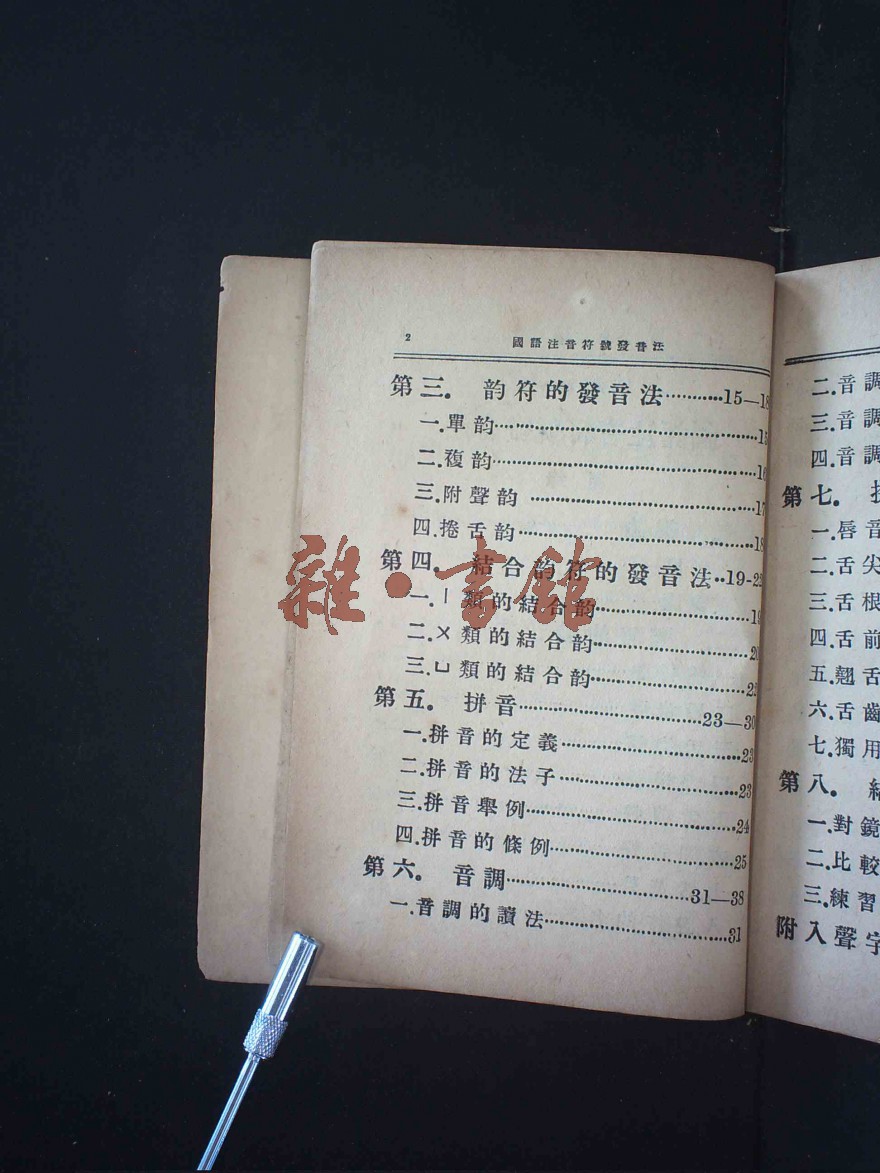 2 國語注音符號發音法
第三. 韵符的發音法…………15—18
一.單韵…………15
二.複韵…………16
三.附聲韵…………17
四.捲舌韵…………18
第四. 結合韵符的發音法…19-22
一.丨類的結合韵…………19
二.ㄨ類的結合韵…………20
三.ㄩ類的結合韵…………22
第五. 拼音…………23—30
一.拼音的定義…………23
二.拼音的法子…………23
三.拼音舉例…………24
四.拼音的條例…………25
第六. 音調…………31—38
一.音調的讀法…………31
二.音調
三.音調
四.音調
第七.
一.唇音
二.舌尖
三.舌根
四.舌前
五.翹舌
六.舌齒
七.獨用
第八.
一.對鏡
二.比較
三.練習
附入聲字
雜·書館